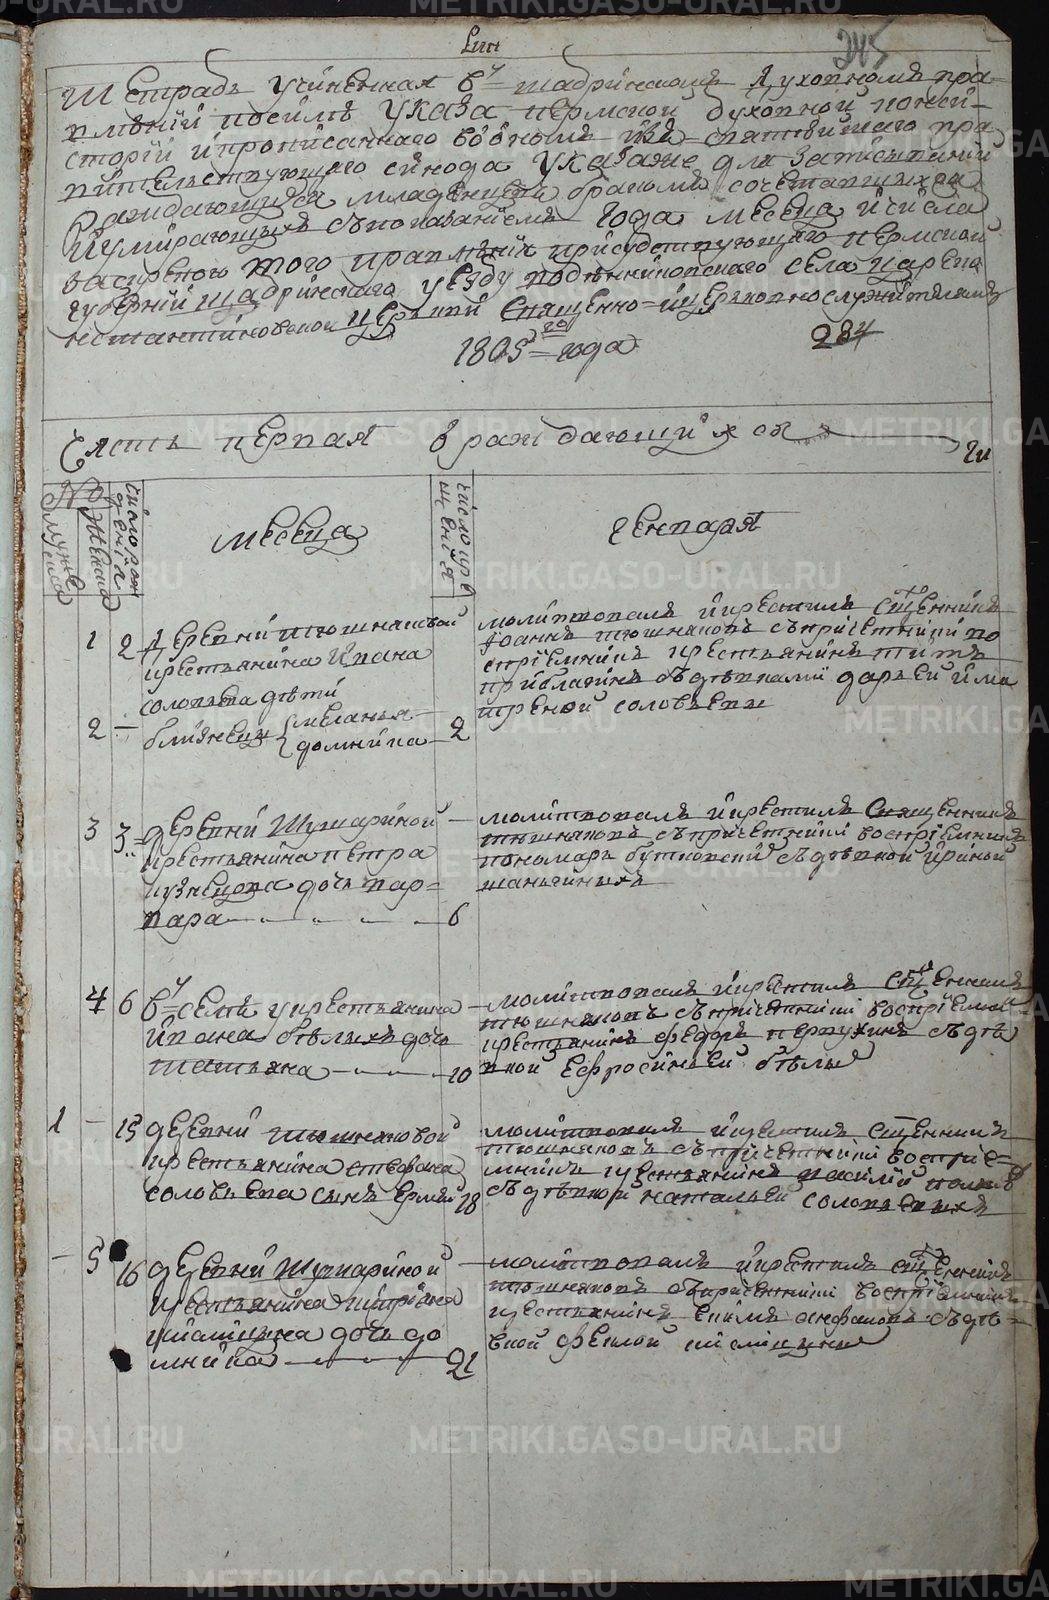 Лист
245
Тетрадь учиненная въ шадринскомъ духовномъ пра-
вленiи посилѣ указа пермской духовной консi-
сторiи ипрописаннаго воономъ изъ святѣйшаго пра
вительствующаго синода указаже для записыванiй
раждающихся младенцевъ бракомъ сочетавшихся
иумирающихъ съпоказанiемъ года месеца ичисла
того правленiя присудствующаго пермской
губернiи шадринскаго уезду села царево
константиновской церкви священно-ицерковнослужителямъ
1805го года
284
Часть первая ораждающихся
№
мужеска
женска
число рожденiя
месеца
число крещенiя
генваря
1 2 деревни тюшнаковой
крестьянина ивана
соловьева дѣти
2 — близнецы меланья
домника 2
молитвовалъ икрестилъ сщенникъ
Iоаннъ тюшняковъ съпричетники во
спрiемникъ крестьянинъ титъ
съдѣвками дарьей има
треной соловьевы
3 3 деревни Шушариной
крестьянина петра
кузнецова дочь вар=
вара 6
молитвовалъ икрестилъ священникъ
тюшняковъ съпричетники воспрiемникъ
пономарь съдѣвкой ириной
4 6 въ селѣ укрестьянина
ивана бѣлыхъ дочь
татьяна 10
молитвовалъ икрестилъ сщенникъ
тюшняковъ съпричетники воспрiемни
крестьянинъ федоръ первухинъ съдѣ
вкой ефросиньей бѣлы
1 — 15 деревни тюшняковой
крестьянина стефана
соловьева сынъ 18
молитвовалъ икрестилъ сщенникъ
тюшняковъ съпричетники воспрiе=
мникъ крестьянинъ василiй
съдѣвкой натальей соловьевыхъ
— 5 16 деревни Шушариной
крестьянина
дочь до
мника 21
молитвовалъ икрестилъ сщенникъ
тюшняковъ съпричетники воспрiемникъ
крестьянинъ съдѣ=
вкой феклой
METRIKI.GASO-URAL.RU